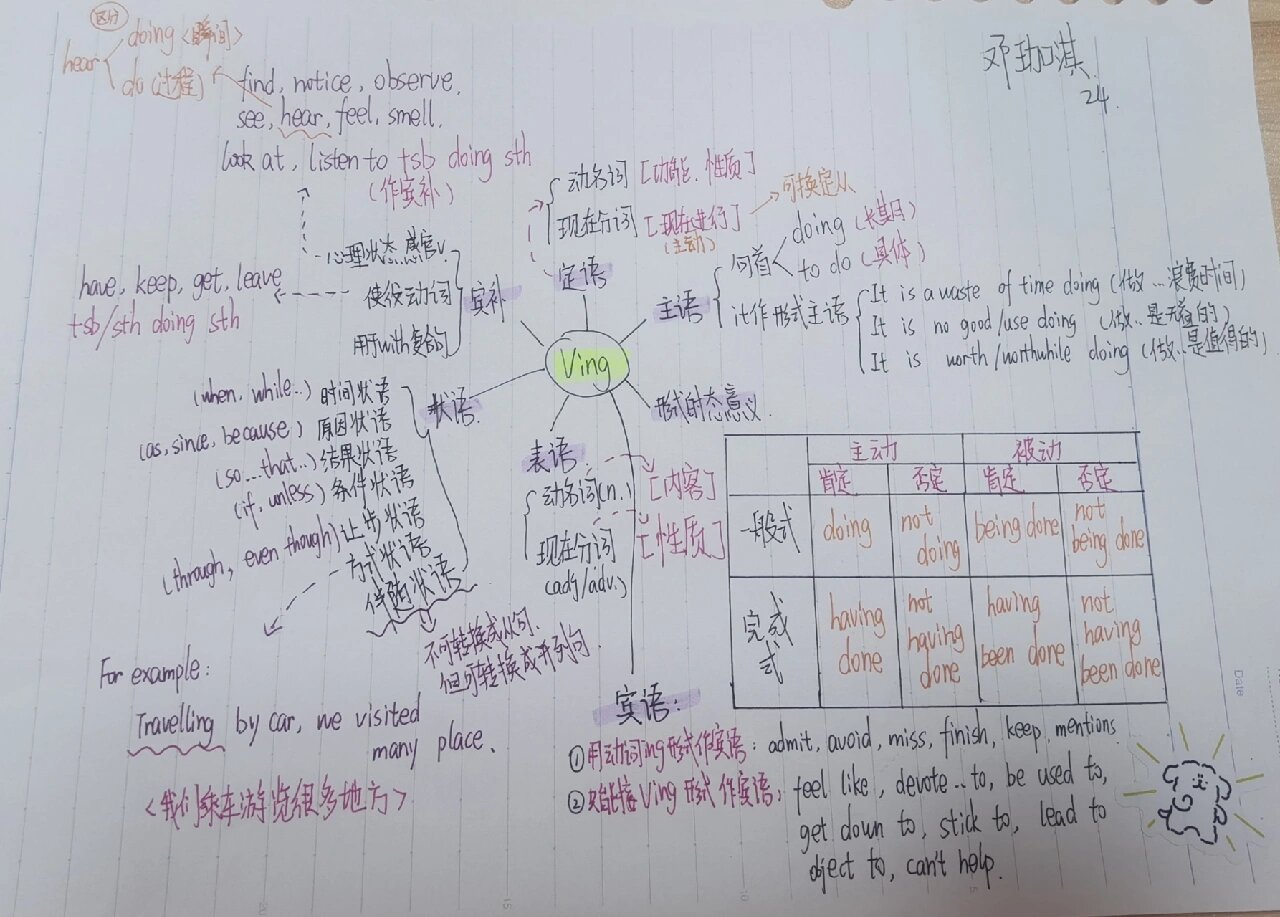 区分
hear
doing <瞬间>
do (过程)
find, notice, observe,
see, hear, feel, smell,
look at, listen to +sb doing sth
(作宾补)
邓珈淇
24.
定语
动名词 [功能、性质]
现在分词 [现在进行]
(主动)
可换定从
主语
句首
doing (长期)
to do (具体)
it作形式主语
It is a waste of time doing (做...浪费时间)
It is no good/use doing (做...是无益的)
It is worth/worthwhile doing (做...是值得的)
宾补
心理状态感官v.
使役动词
用于with复合句
have, keep, get, leave
+sb/sth doing sth
Ving
状语
(when, while..) 时间状语
(as, since, because) 原因状语
(so...that..) 结果状语
(if, unless) 条件状语
(through, even though) 让步状语
方式状语
伴随状语
不可转换成从句,
但可转换成并列句.
For example:
Travelling by car, we visited
many place.
<我们乘车游览很多地方>
表语
动名词(n.) [内容]
现在分词 [性质]
(adj/adv.)
形式时态意义
主动 被动
肯定 否定 肯定 否定
一般式 doing not doing being done not being done
完成式 having done not having done having been done not having been done
宾语:
①用动词ing形式作宾语: admit, avoid, miss, finish, keep, mentions
②只能接Ving形式作宾语: feel like, devote..to, be used to,
get down to, stick to, lead to
oject to, can't help.
Date
20
15
10
5